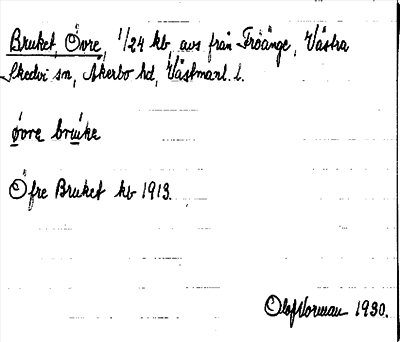 Bruket, Övre, 1/24 kb, avs från Fröänge, Västra
Skedvi sn, Åkerbo hd, Västmanl. l.
øvrə brukə
Öfre Bruket kb 1913.
Olof Norman 1930.